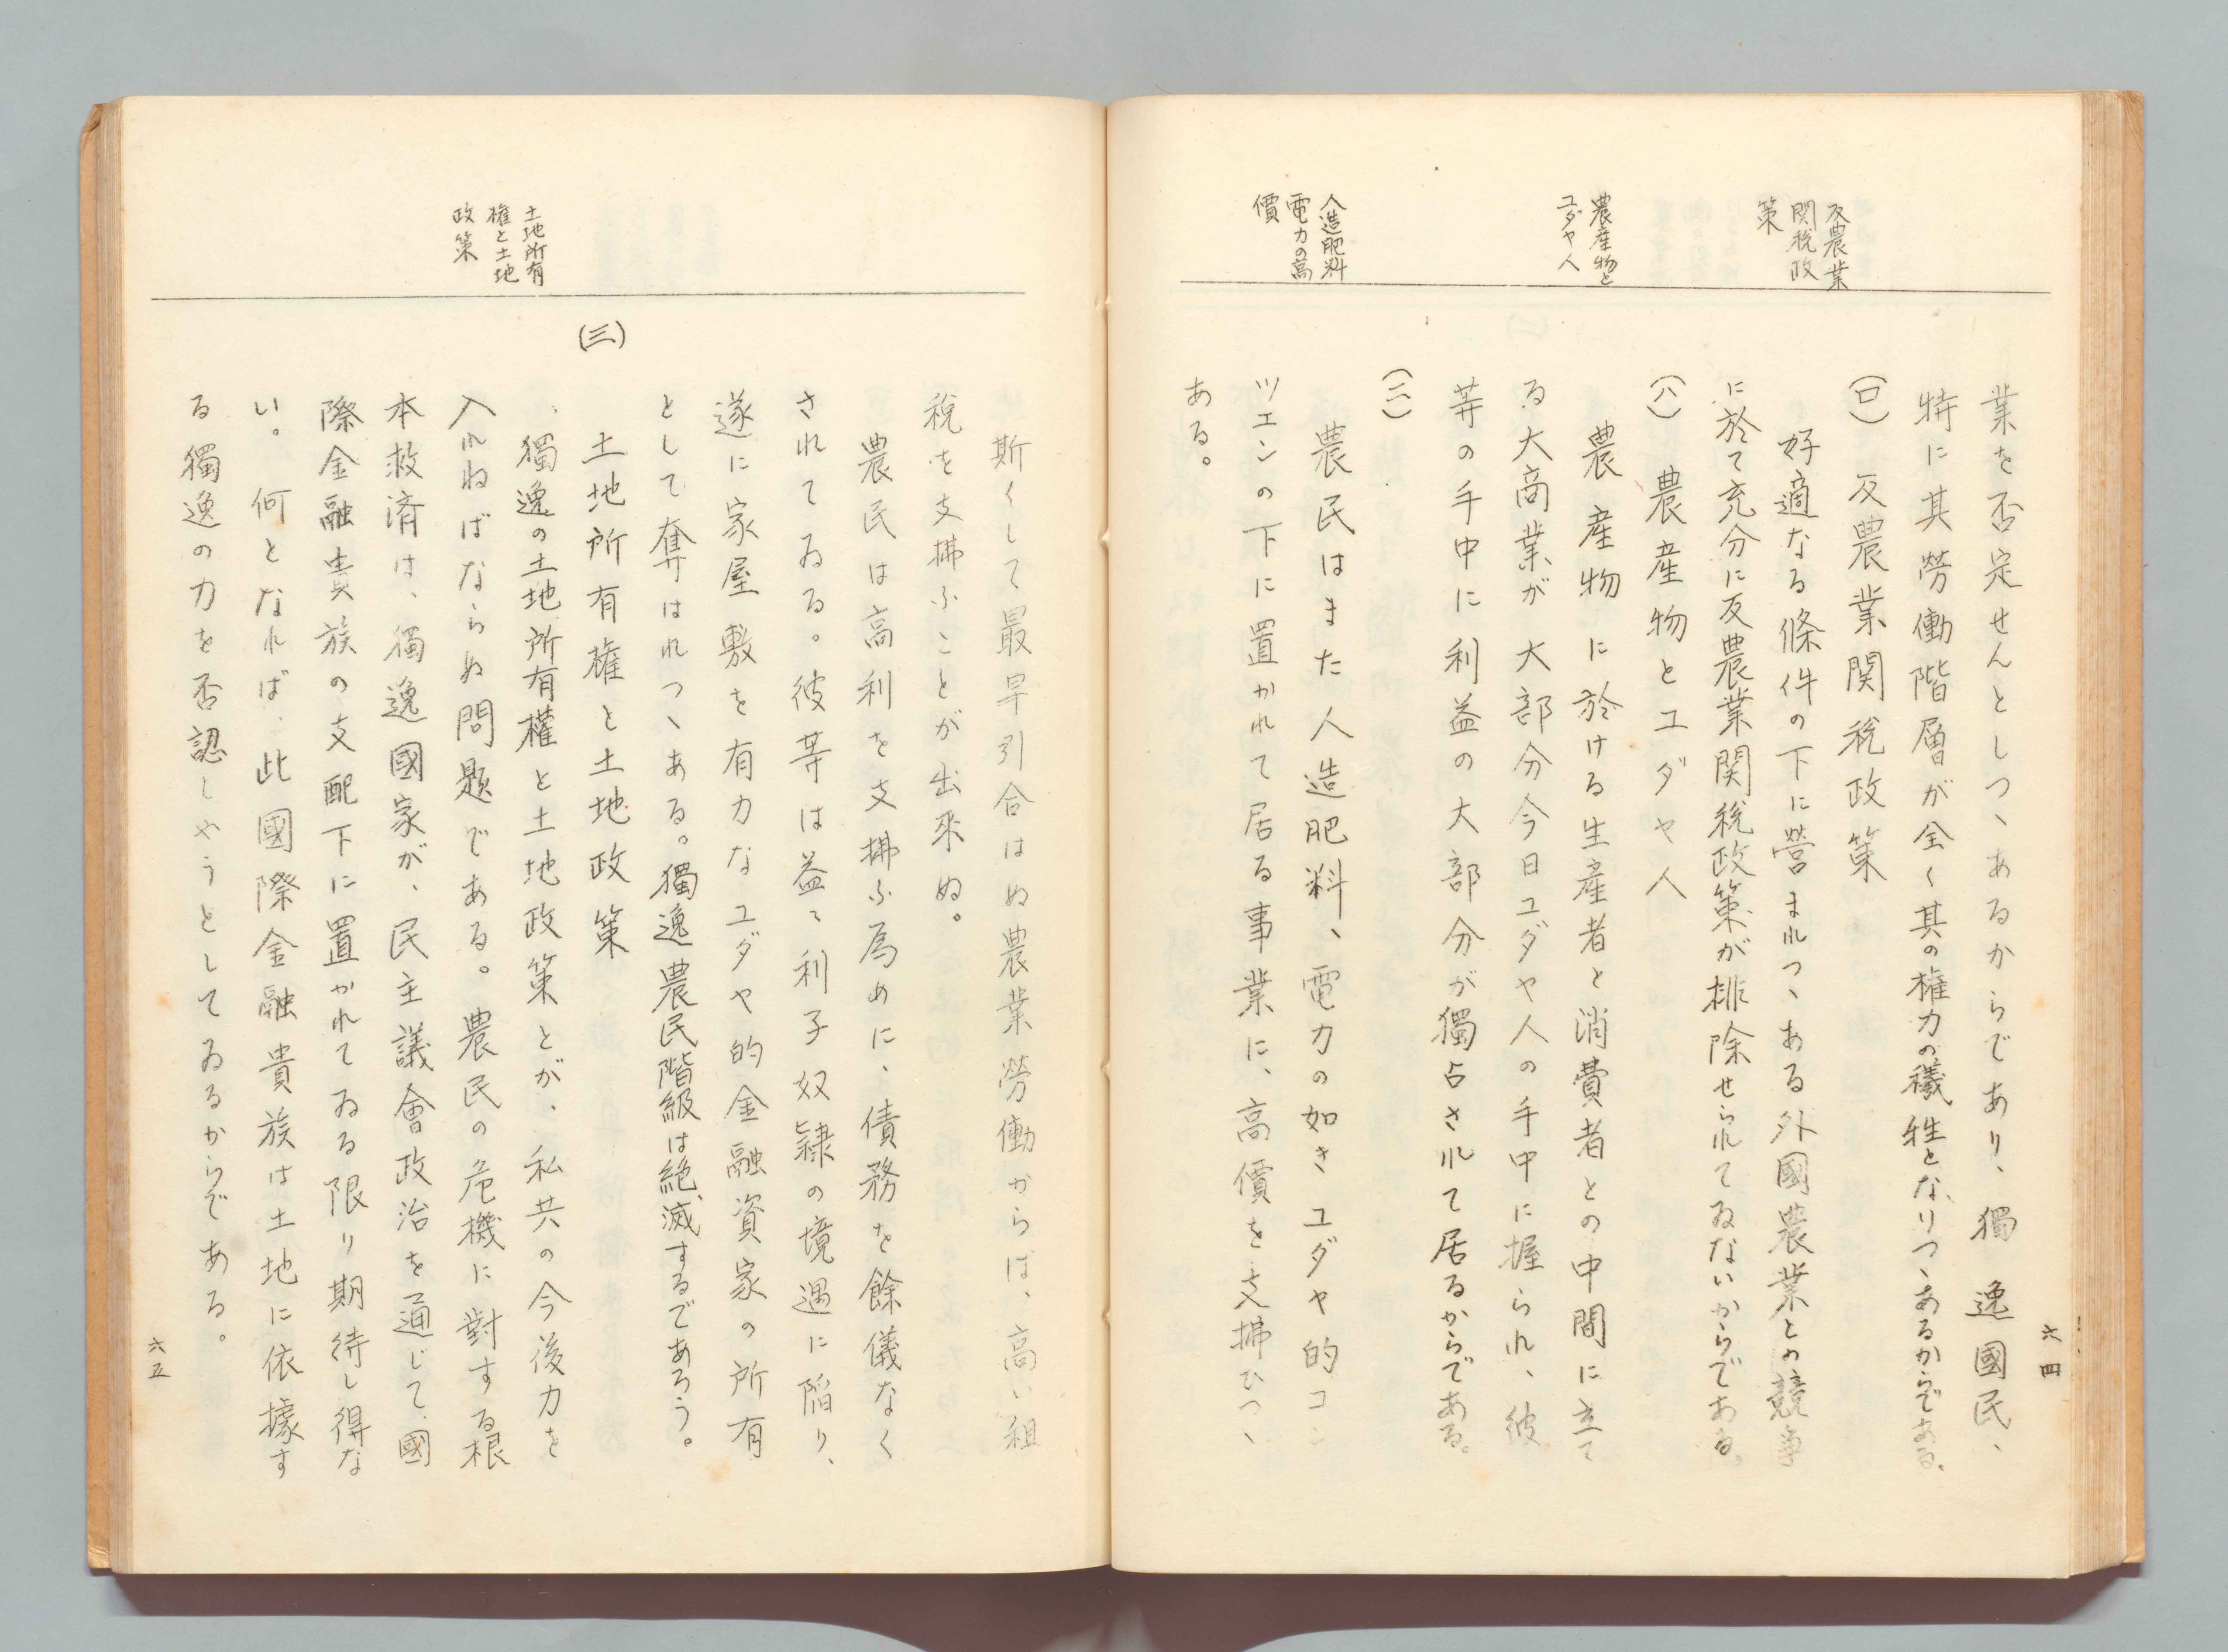 反農業
関税政
策
農産物と
ユダヤ人
人造肥料
電力の高
價
業を否定せんとしつゝあるからであり、獨逸國民、
特に其勞働階層が全く其の権力の犠牲となりつゝあるからである。
(ロ) 反農業関税政策
好適なる條件の下に營まれつゝある外國農業との競爭
に於て充分に反農業関税政策が排除せられてゐないからである。
(ハ) 農産物とユダヤ人
農産物に於ける生産者と消費者との中間に立て
る大商業が大部分今日ユダヤ人の手中に握られ、彼
等の手中に利益の大部分が獨占されて居るからである。
(ニ)
農民はまた人造肥料、電力の如きユダヤ的コン
ツェンの下に置かれて居る事業に、高價を支拂ひつゝ
ある。
六四
土地所有
権と土地
政策
斯くして最早引合はぬ農業勞働からは、高い租
税を支拂ふことが出來ぬ。
農民は高利を支拂ふ為めに、債務を餘儀なく
されてゐる。彼等は益々利子奴隷の境遇に陷り、
遂に家屋敷を有力なユダヤ的金融資家の所有
として奪はれつゝある。獨逸農民階級は絶滅するであろう。
(三) 土地所有権と土地政策
獨逸の土地所有權と土地政策とが、私共の今後力を
入れねばならぬ問題である。農民の危機に對する根
本救済は、獨逸國家が、民主議會政治を通じて、國
際金融貴族の支配下に置かれてゐる限り期待し得な
い。何となれば、此國際金融貴族は土地に依據す
る獨逸の力を否認しやうとしてゐるからである。
六五